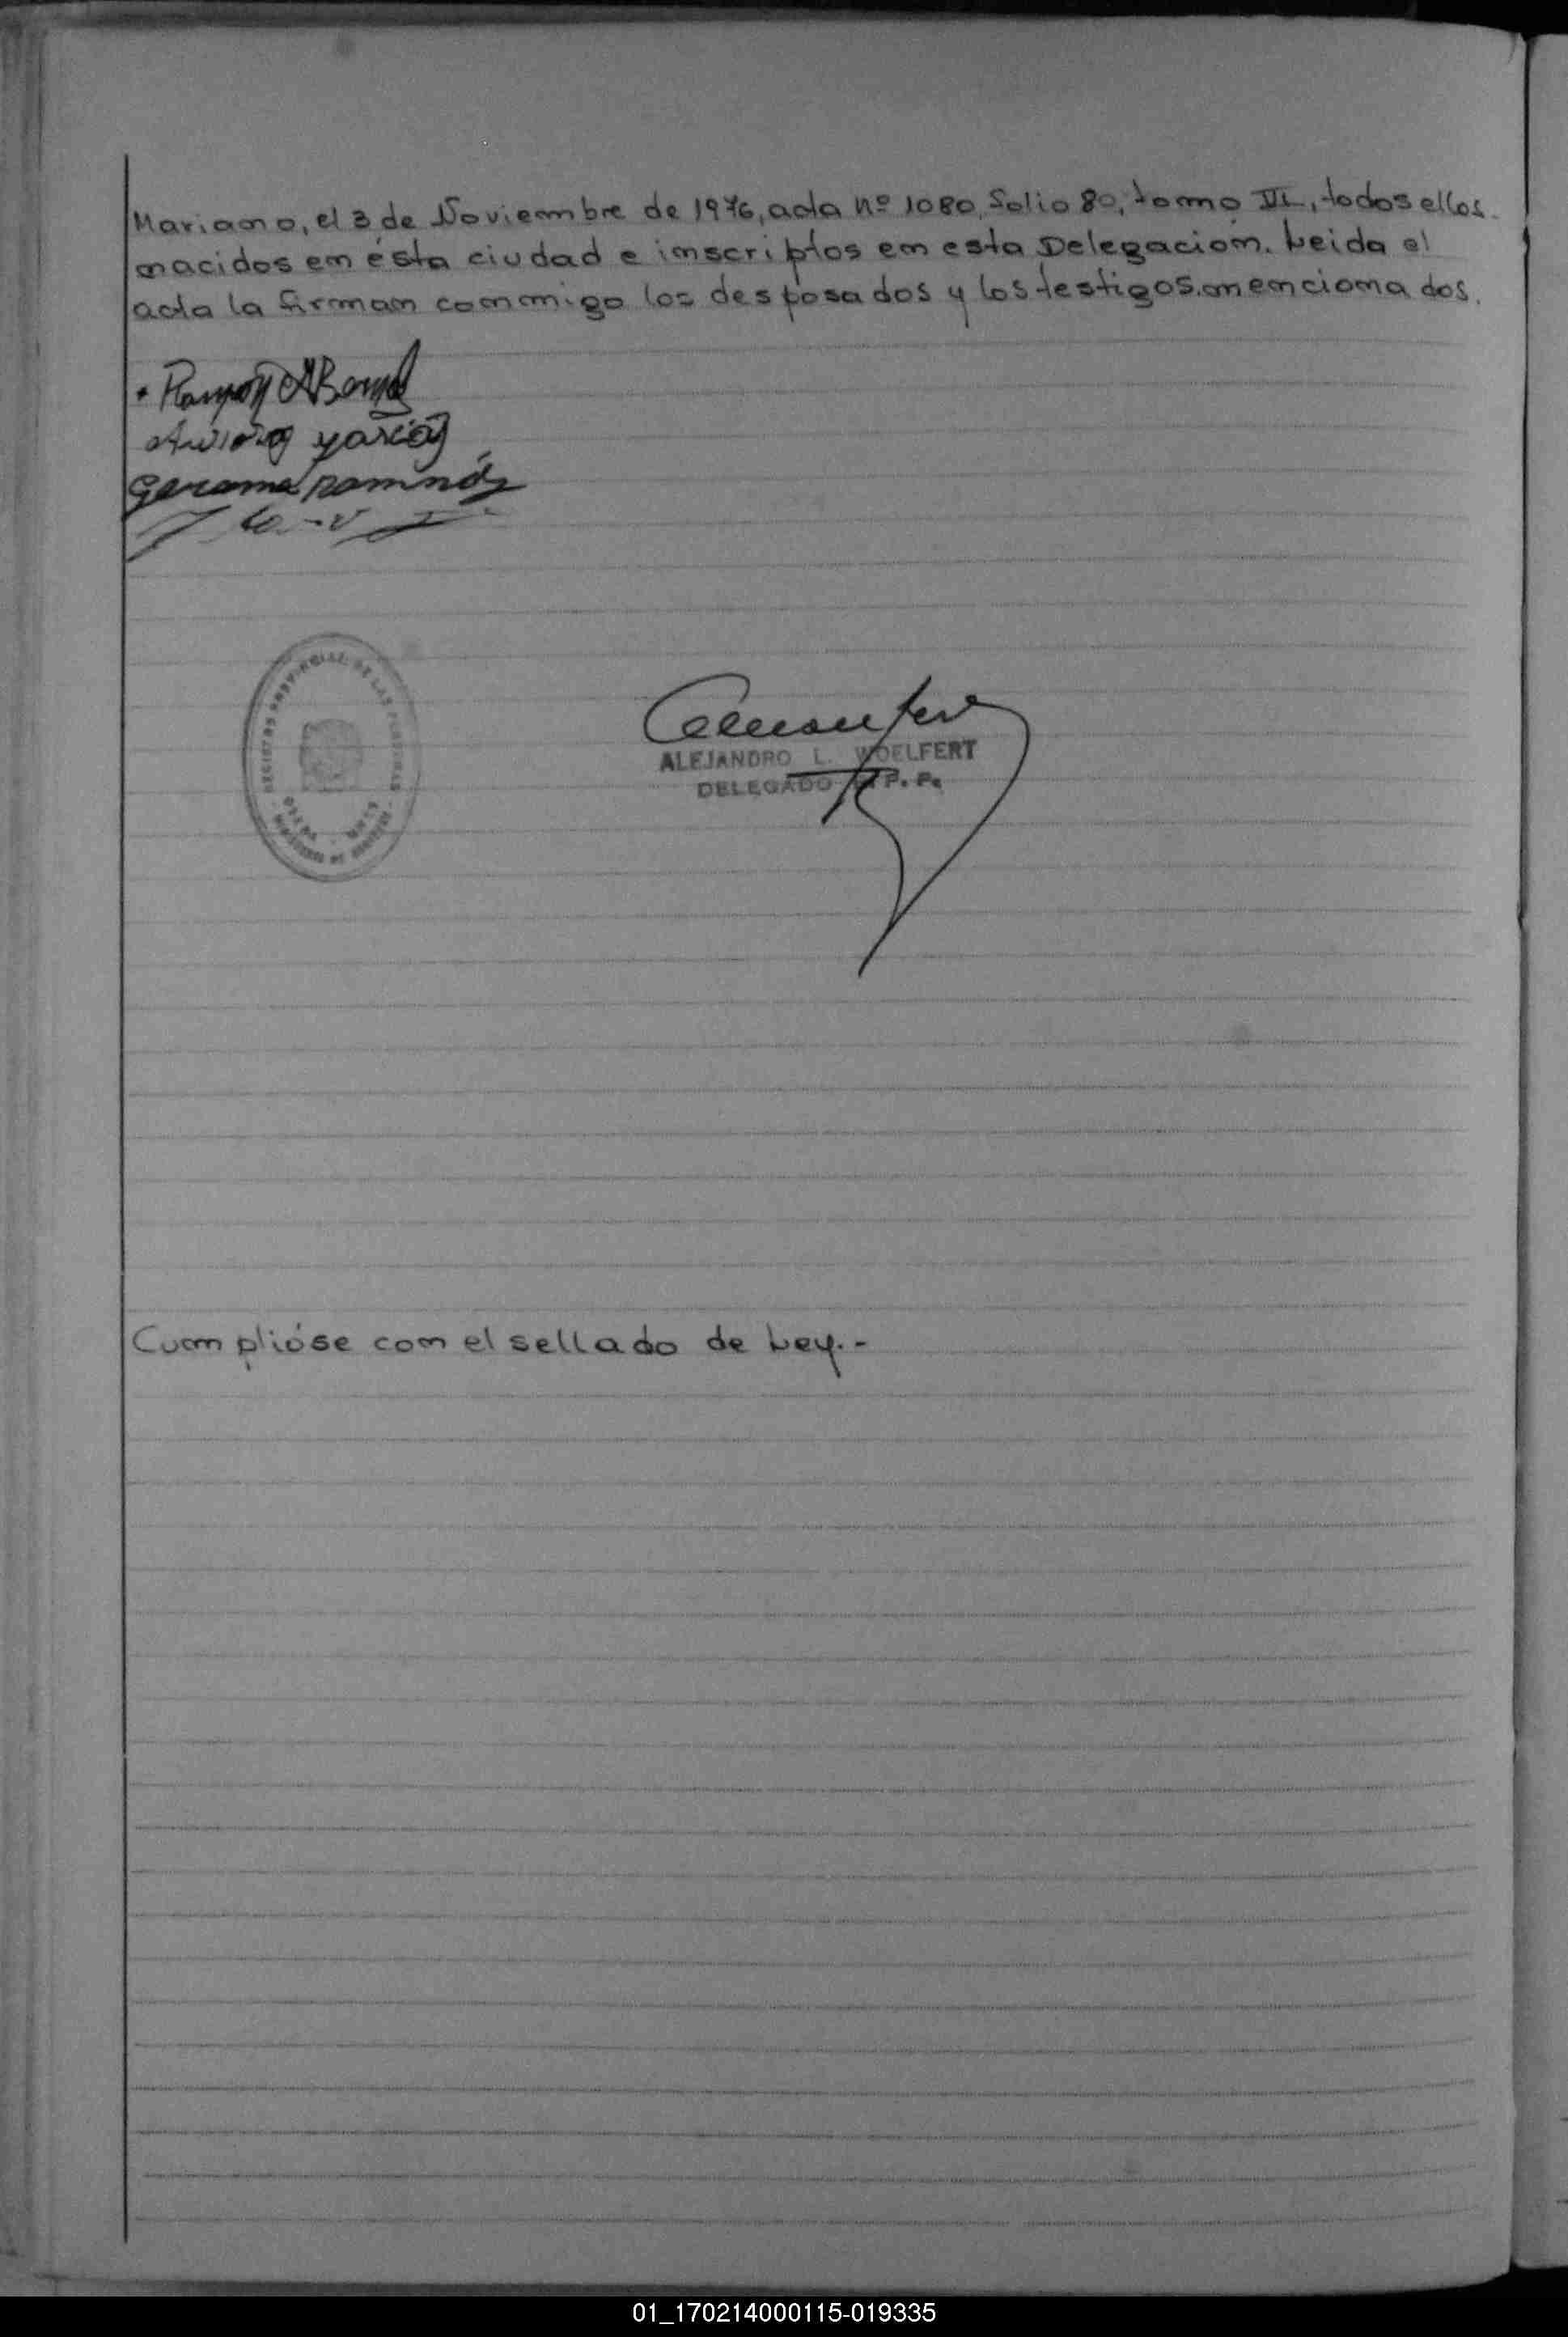 Mariano, el 3 de Noviembre de 1976, acta Nº 1080, folio 80, tomo VI, todos ellos
nacidos en ésta ciudad e inscriptos en esta Delegación. Leida el
acta la firman conmigo los desposados y los testigos mencionados.
ALEJANDRO L. WOELFERT
DELEGADO P. P.
Cumplióse con el sellado de Ley.-
01_170214000115-019335